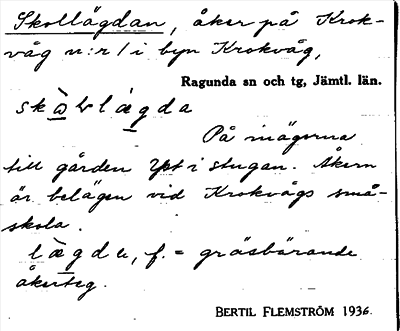 Skollägdan, åker på Krok-
våg n:r 1 i byn Krokvåg,
Ragunda sn och tg, Jämtl. län.
På ägorna
till gården Ypt i stugan. Åkern
är belägen vid Krokvågs små-
skola.
f. = gräsbärande
åkerteg.
BERTIL FLEMSTRÖM 1936.